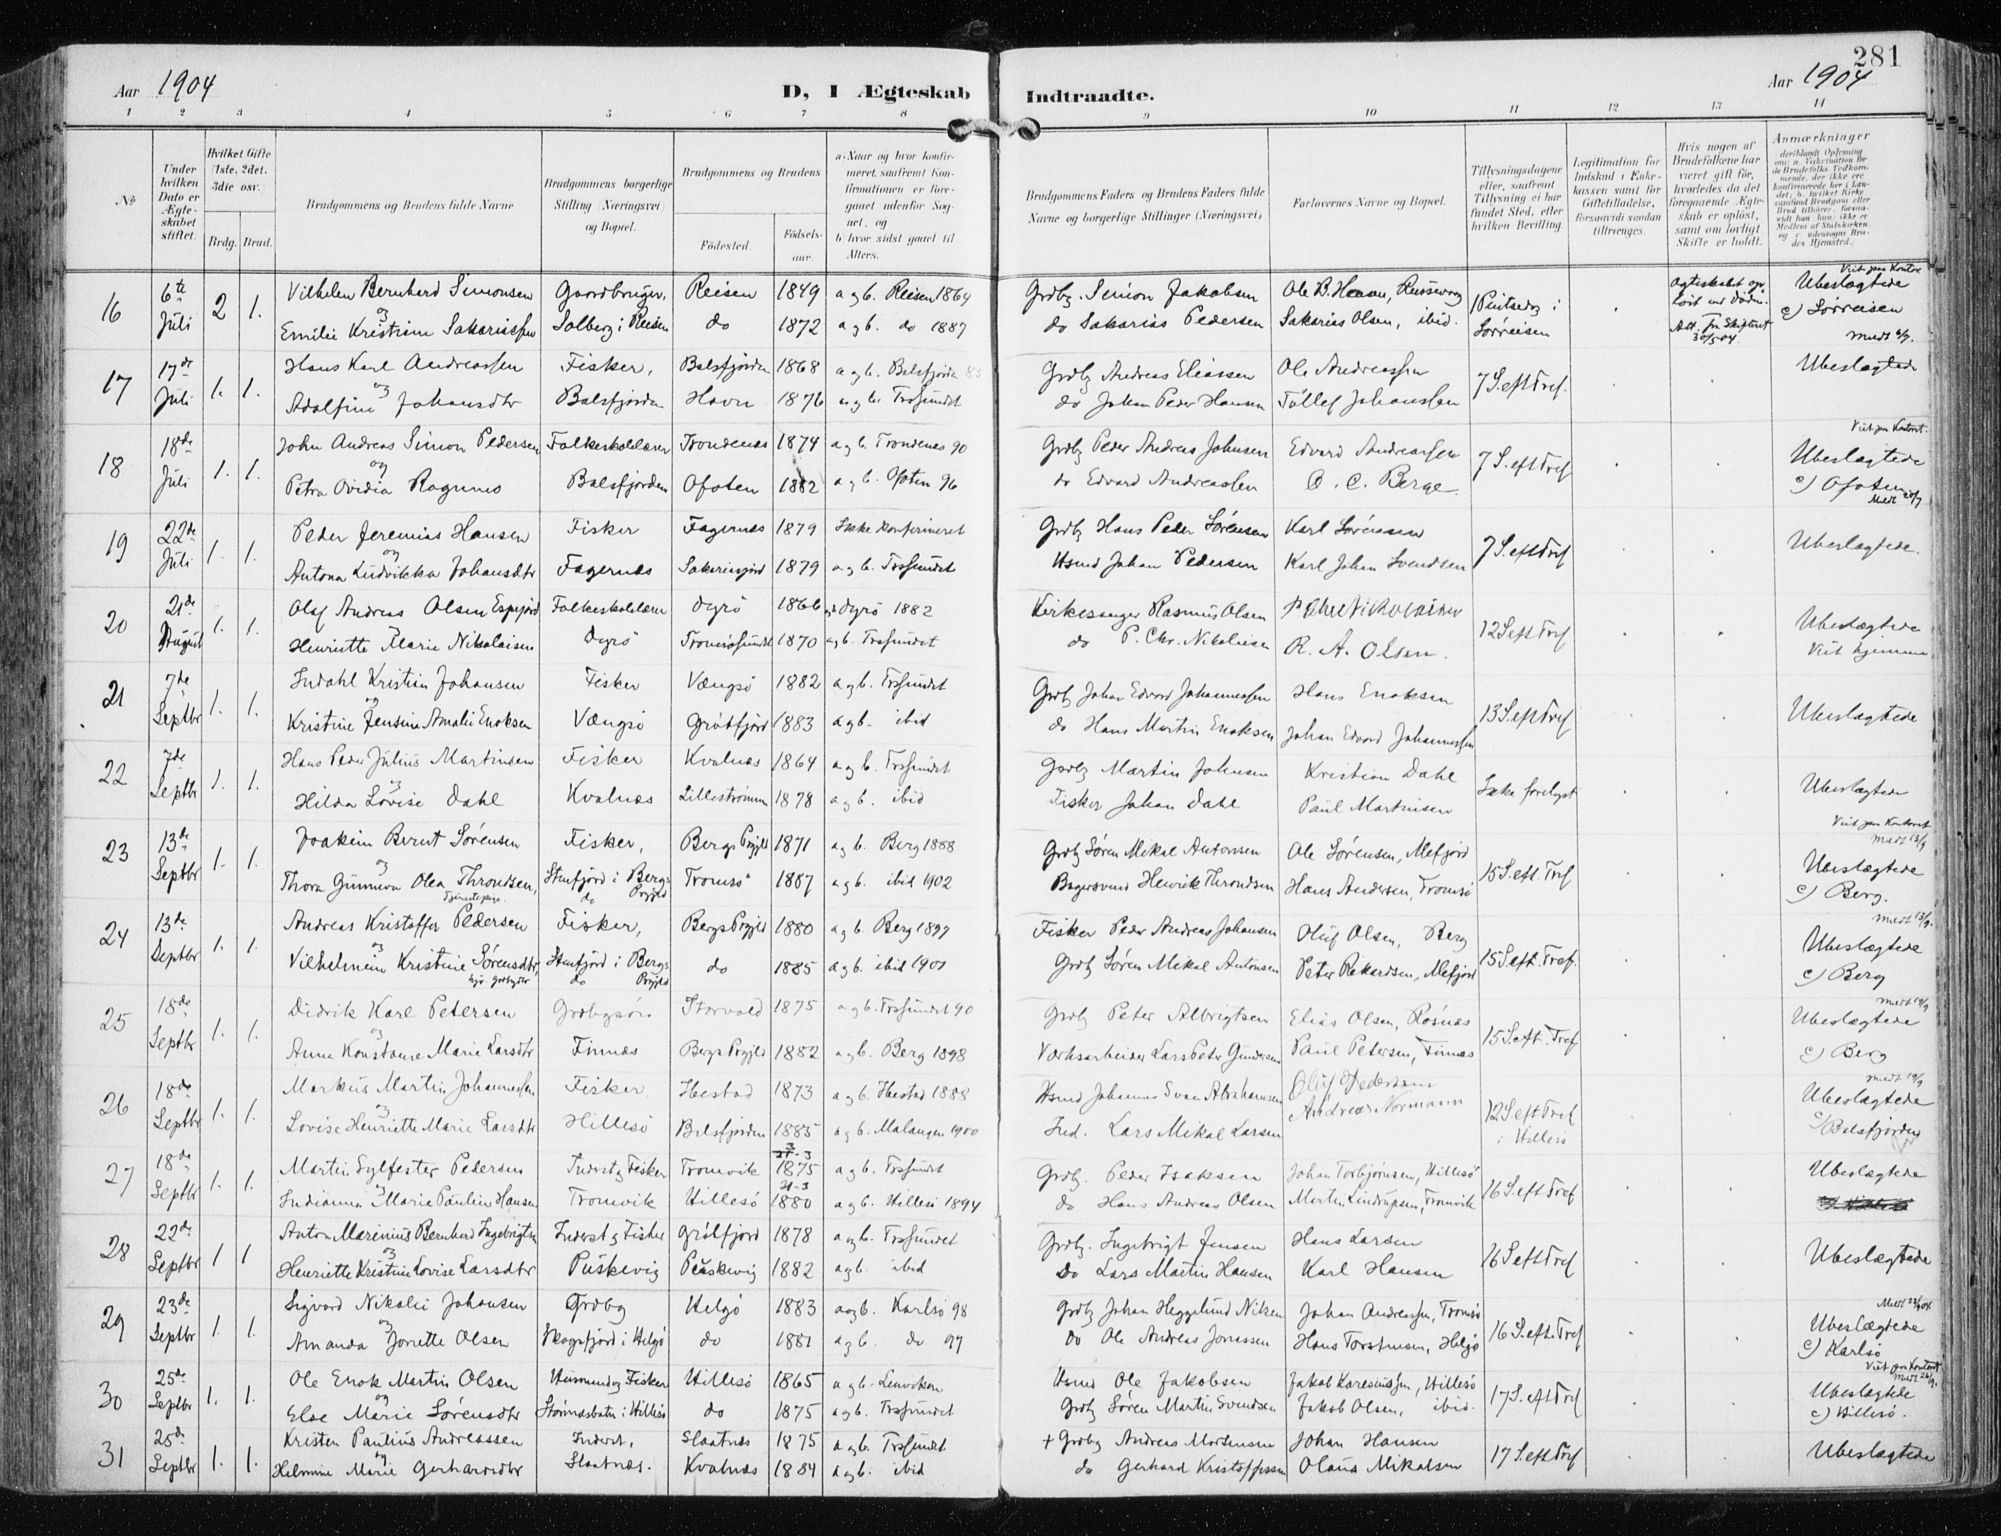 281
Aar 1904
D, I Ægteskab Indtraadte.
Aar 1904
1 2 3 4 5 6 7 8 9 10 11 12 13 14
№
Under hvilken Dato er Ægteskabet stiftet.
Hvilket Gifte (1ste, 2det, 3die osv.
Brdg. Brud.
Brudgommens og Brudens fulde Navne
Brudgommens borgerlige Stilling (Næringsvei) og Bopæl.
Brudgommens og Brudens
Fødested. Fødselsaar.
a) Naar og hvor konfirmeret, saafremt Konfirmationen er foregaaet udenfor Sognet, og
b hvor sidst gaaet til Alters.
Brudgommens Faders og Brudens Faders fulde Navne og borgerlige Stillinger (Næringsvei)
Forlovernes Navne og Bopæl.
Tillysningsdagene eller, saafremt Tillysning ei har fundet Sted, efter hvilken Bevilling.
Legitimation for Indskud i Enkekassen samt for Giftetilladelse, forsaavidt saadan tiltrænges.
Hvis nogen af Brudefolkene har været gift før, hvorledes da det foregaaende Ægteskab er opløst, samt om lovligt Skifte er holdt.
Anmærkninger
16 6te Juli 2 1. Vilhelm Bernhard Simonsen Gaardbruger, Reisen 1849 a og b. Reisen 1864 Grdbg. Simon Jakobsen Ole B. Ubeslægtede
og
Emilie Kristine Sakariassen Solberg i Reisen do 1872 a og b. do 1887 do Sakarias Pedersen Sakarias Olsen, ibid. Sørreisen c) Sørreisen
17 17de Juli 1. 1. Hans Karl Andreassen Fisker, Balsfjorden 1868 a og b. Balsfjorden 83 Grdbg Andreas Eliassen Ole Andreassen 7 S. eft Tref. Ubeslægtede
og
Adolfine Johansdtr Balsfjorden Havn 1876 a og b. Troesundet do Johan Peder Hansen Tollef Johanssen
18 18de Juli 1. 1. John Andreas Simon Pedersen Folkeskolelærer Trondenæs 1874 a og b. Trondenæs 90 Grdbg Peder Andreas Johnsen Edvard Andreassen 7 S. eft Tref Ubeslægtede
og
Petra Ovidia Ragnno Balsfjorden Ofoten 1882 a og b. Ofoten 96 do Edvard Andreassen O. C. Berge. c) Ofoten
19 22de Juli 1. 1. Peder Jeremias Hansen Fisker Fagernæs 1879 Ikke konfirmeret Grdbg Hans Peder Sørensen Karl Sørensen 7 S. eft Tref Ubeslægtede.
og
Antona Ludvikka Johansdtr Fagernæs Sakariasjord 1879 a og b. Troesundet Hsmd Johan Pedersen Karl Johan Svendsen
20 21de August 1. 1. Olaf Andreas Olsen Espejord Folkeskolelærer Dyrø 1866 Dyrø 1882 Kirkesanger Rasmus Olsen 12 S. eft Tref Ubeslægtede
Henriette Marie Nikolaisen Dyrø Tromsøsundet 1870 a og b. Troesundet do P. Chr. Nikolaisen R. A. Olsen. Viet hjemme
21 7de Septbr 1. 1. Indahl Kristian Johansen Fisker Vængsø 1882 a og b. Troesundet Grdbg Johan Edvard Johannessen Hans Enoksen 13 S. eft Tref Ubeslægtede
og
Kristine Jensine Amalie Enoksen Vængsø Grøtfjord 1883 a og b. ibid do Hans Martin Enoksen Johan Edvard Johannessen
22 7de Septbr 1. 1. Hans Peder Julius Martinsen Fisker Kvalnæs 1864 a og b. Troesundet Grdbg Martin Johnsen Kristian Dahl Ikke forelyst Ubeslægtede
og
Hilda Lovise Dahl Kvalnæs Lillestrømmen 1878 a og b. ibid Fisker Johan Dahl Paul Martinsen
23 13de Septbr 1. 1. Joakim Bernt Sørensen Fisker, Bergs Prgjld 1871 a og b. Berg 1888 Grdbg Søren Mikal Antonsen Ole Sørensen, Mefjord 15 S. eft. Tref Ubeslægtede
og
Thora Gunneva Olea Throndsen, Stenfjord i Bergs Prgjld Tromsø 1887 a og b. ibid 1902 Bagersvend Henrik Throndsen Hans Andersen, Tromsø c) Berg.
24 13de Septbr 1. 1. Andreas Kristoffer Pedersen Fisker, Bergs Prgjld 1880 a og b. Berg 1897 Fisker Peder Andreas Johansen Oluf Olsen, Berg 15 S. eft. Tref. Ubeslægtede
og
Vilhelmine Kristine Sørensdtr, Stenfjord i Bergs Prgjld do 1885 a og b. ibid 1901 Grdbg Søren Mikal Antonsen Peter Rikardsen, Mefjord c) Berg
25 18de Septbr 1. 1. Didrik Karl Petersen Grdbgsøn Storvold 1875 a og b. Troesundet 90 Grdbg Peter Albrigtsen Elias Olsen, Rosnæs 15 S. eft. Tref Ubeslægtede
og
Anna Konstanse Marie Larsdtr Finnæs Bergs Prgjld 1882 a og b. Berg 1898 Værksarbeider Lars Peter Gundersen Paul Petersen, Finnæs c) Berg
26 18de Septbr 1. 1. Markus Martin Johannessen Fisker Ibestad 1873 a og b. Ibestad 1888 Hsmd Johannes Svan Abrahamsen Oluf Pedersen 12 S. eft Tref Ubeslægtede
og
Lovise Henriette Marie Larsdtr Hillesø Balsfjorden 1885 a og b. Malangen 1900 Ind. Lars Mikal Larsen Andreas Normann i Hillesø c) Balsfjorden
27 18de Septbr 1. 1. Martin Sylfester Pedersen Inderst og Fisker Tromvik 1875 a og b. Troesundet Grdbg. Peder Isaksen Johan Torbjørnsen, Hillesø 16 S. eft Tref Ubeslægtede
og
Indianna Marie Pauline Hansen Tromvik Hillesø 1880 a og b. Hillesø 1894 do Hans Andreas Olsen Martin Lindrupsen, Tromvik
28 22de Septbr 1 1 Anton Marenius Bernhard Ingebrigtsen Inderst og Fisker Grøtfjord 1878 a og b. Troesundet Grdbg. Ingebrigt Jensen Hans Larsen 16 S. eft Tref Ubeslægtede
og
Henriette Kristine Lovise Larsdtr Buskevig 1882 a og b. ibid do Lars Martin Hansen Karl Hansen
29 23de Septbr 1. 1. Sigvard Nikolai Johansen Grdbg Helgø 1883 a og b. Karlsø 98 Grdbg Johan Heggelund Nilsen Johan Andreassen, Tromsø 16 S. eft. Tref Ubeslægtede
og
Amanda Jonette Olsen Skogsfjord i Helgø do 1881 a og b. do 97 do Ole Andreas Jonessen Hans Torstensen, Helgø c) Karlsø
30 25de Septbr 1. 1. Ole Enok Martin Olsen Husmand og Fisker Hillesø 1865 a og b. Lenviken Hsmd Ole Jakobsen Jakob Kareliussen, Hillesø 17 S. eft Tref Ubeslægtede
og
Else Marie Sørensdtr do 1875 a og b. Troesundet Grdbg Søren Martin Svendsen Jakob Olsen, ibid. c) Hillesø.
31 25de Septbr 1. 1. Kristen Paulius Andreassen Inderst, Slaatnæs 1875 a og b. Troesundet + Grdbg Andreas Mortensen Johan Hansen 17 S. eft Tref Ubeslægtede
og
Helmine Marie Gerhardsdtr Slaatnæs. Kvalnæs 1884 a og b. ibid do Gerhard Kristoffersen Olaus Mikalsen